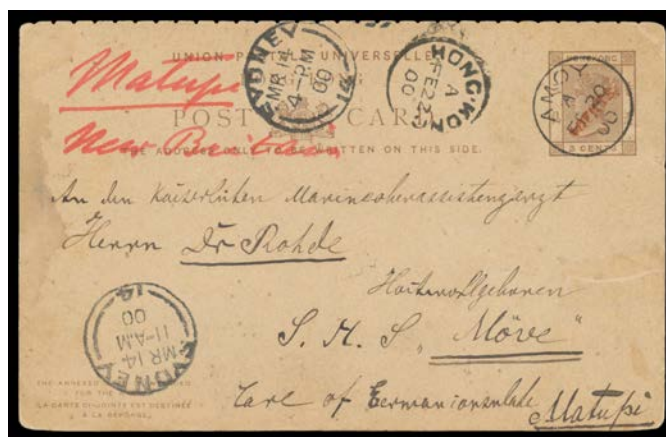 UNION POSTALE UNIVERSELLE
HONG KONG
Matupi
POST CARD
New Britain
THE ADDRESS ONLY TO BE WRITTEN ON THIS SIDE.
SYDNEY
MR 14
4-PM
00
14
HONG-KONG
A
FE 22
00
AMOY
A
FE 20
00
3 CENTS
An den Kaiserlichen Marineoberassistenzarzt
Herrn Dr Rohde
Hochwohlgeboren
S. M. S. „Möve"
Care of German consulate Matupi
SYDNEY
MR 14
11-AM
00
14
THE ANNEXED
FOR THE
LA CARTE CI-JOINTE EST DESTINÉE
À LA RÉPONSE.